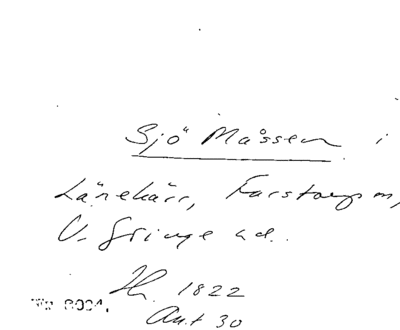 Sjö Måssen i
Länehärr, Farstorp sn,
V. Göinge hd.
Th. 1822
Ant 30